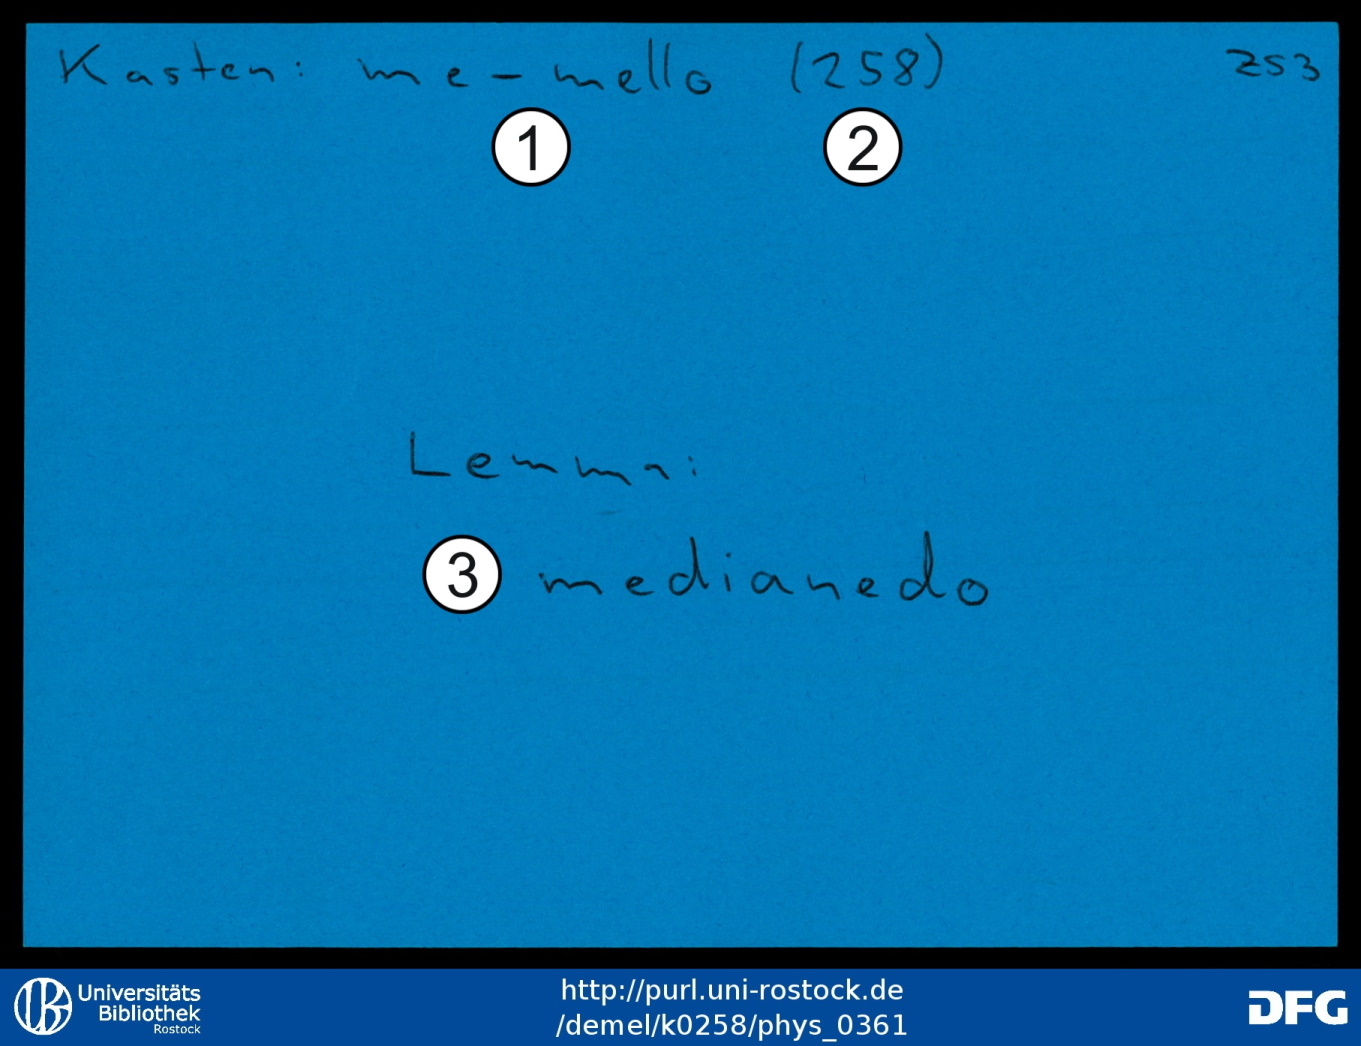 Kasten: me - mello (258) ZS3
1 2
Lemma:
3 medianedo
Universitäts
Bibliothek
Rostock
http://purl.uni-rostock.de
/demel/k0258/phys_0361
DFG